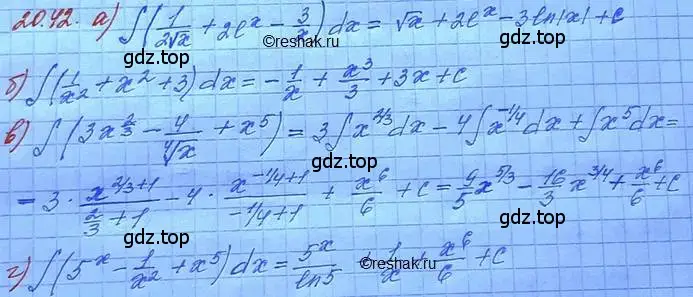 2042. а) ∫(1/(2√x) + 2eˣ − 3/x) dx = √x + 2eˣ − 3ln|x| + c
©reshak.ru
б) ∫(1/x² + x² + 3) dx = −1/x + x³/3 + 3x + c
в) ∫(3x^(2/3) − 4/⁴√x + x⁵) = 3∫x^(2/3) dx − 4∫x^(−1/4) dx + ∫x⁵ dx =
= 3 · x^(2/3+1)/(2/3+1) − 4 · x^(−1/4+1)/(−1/4+1) + x⁶/6 + c = 9/5 x^(5/3) − 16/3 x^(3/4) + x⁶/6 + c
г) ∫(5ˣ − 1/x² + x⁵) dx = 5ˣ/ln5 + 1/x + x⁶/6 + c
©reshak.ru